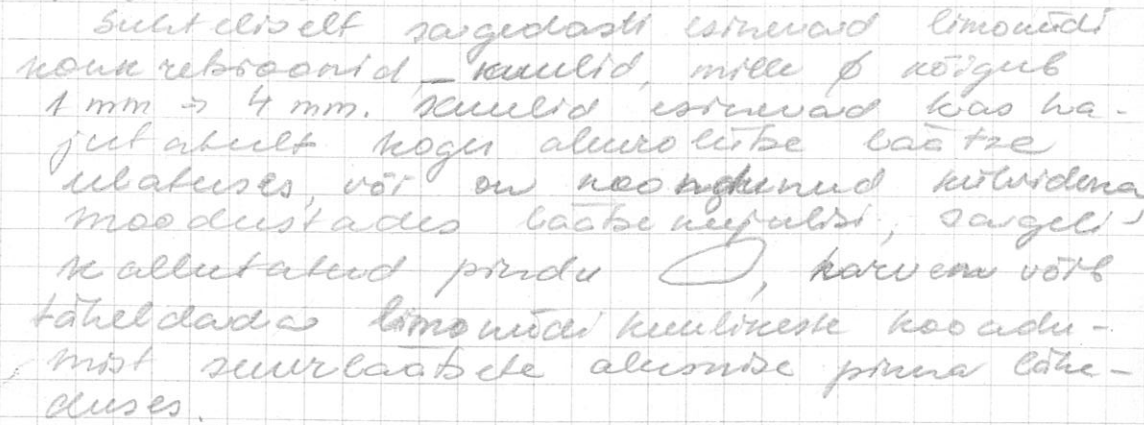 Suhteliselt sagedasti esinevad limoniidi
konkretsioonid – kuulid, mille ø kõigub
1 mm → 4 mm. Kuulid esinevad kas ha-
jutatult kogu aleuroliitse läätse
ulatuses, või on koondunud kihvidena
moodustades läätsekujulisi, sageli
kallutatud pindu , harvem võib
täheldada limoniidi kuulikeste koondu-
mist suurläätsete alumise pinna lähe-
duses.